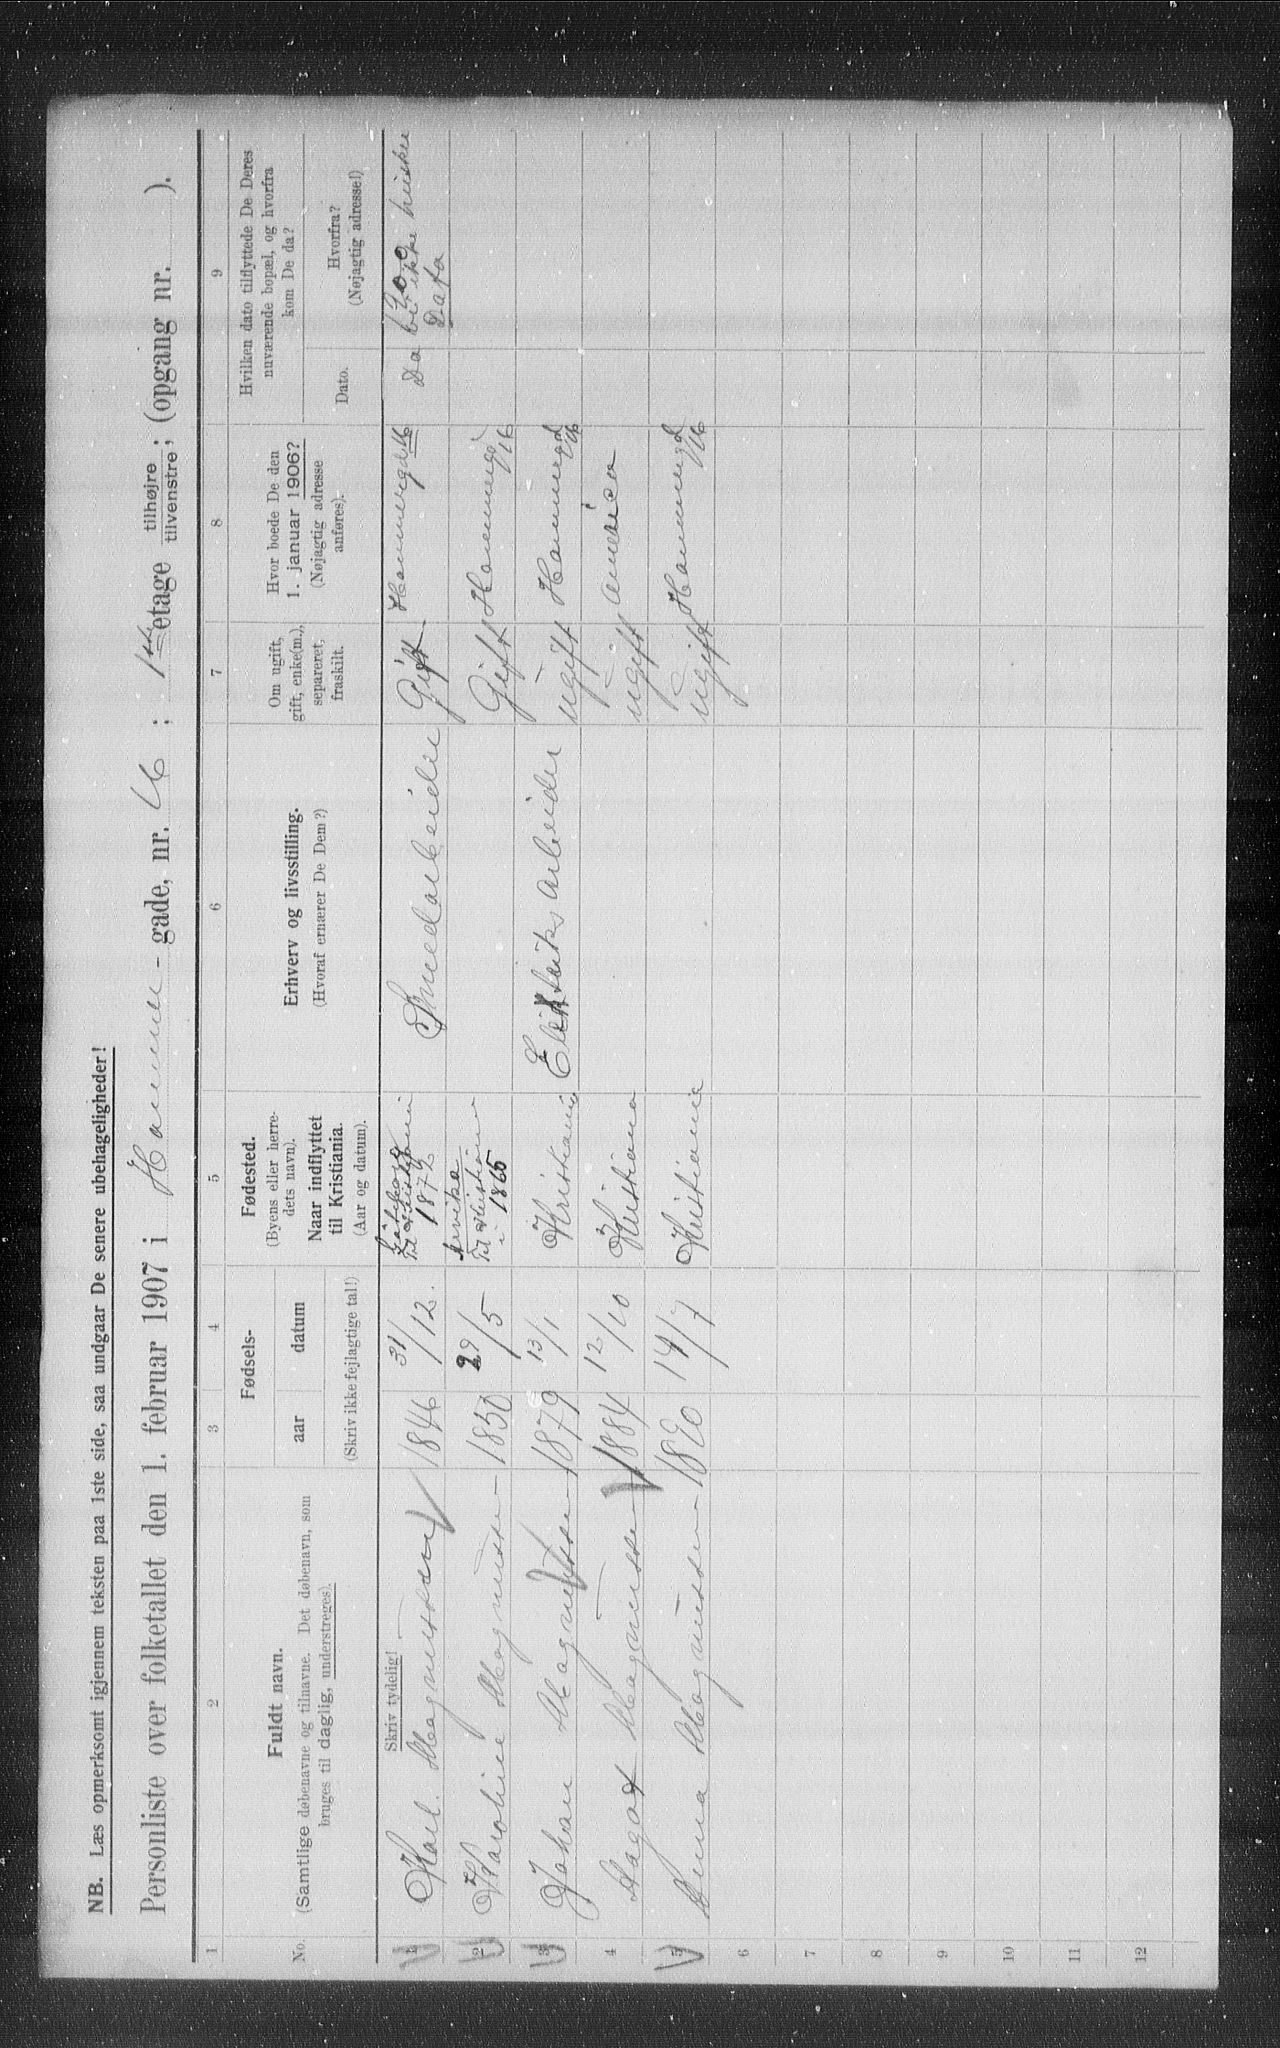 NB. Læs opmerksomt igjennem teksten paa 1ste side, saa undgaar De senere ubehageligheder!
Personliste over folketallet den 1. februar 1907 i Hammer-gade, nr. 16; 1ste etage tilhøjre; tilvenstre; (opgang nr. ).
1 2 3 4 5 6 7 8 9
No.
Fuldt navn.
(Samtlige døbenavne og tilnavne. Det døbenavn, som
bruges til daglig, understreges).
Fødsels-
aar datum
(Skriv ikke fejlagtige tal!)
Fødested.
(Byens eller herre-
dets navn).
Naar indflyttet
til Kristiania.
(Aar og datum).
Erhverv og livsstilling.
(Hvoraf ernærer De Dem?)
Om ugift,
gift, enke(m.),
separeret,
fraskilt.
Hvor boede De den
1. januar 1906?
(Nøjagtig adresse
anføres).
Hvilken dato tilflyttede De Deres
nuværende bopæl, og hvorfra
kom De da?
Dato.
Hvorfra?
(Nøjagtig adresse!)
Skriv tydelig!
1 Karl Magnussen 1846 31/12. 1872 Smedarbeider Gift Hammergd 16 ikke huske
Data
2 Karoline Magnussen 1850 29/5 Arvika
Til Kristiania
i 1865 Gift Hammergd 16
3 Johan Magnussen 1879 13/1 Kristiania Elektriksarbeider ugift Hammergd 16
4 Magnussen 1884 12/10 Kristiania ugift Amerika
5 Anna Magnussen 1890 14/7 Kristiania ugift Hammergd 16
6
7
8
9
10
11
12